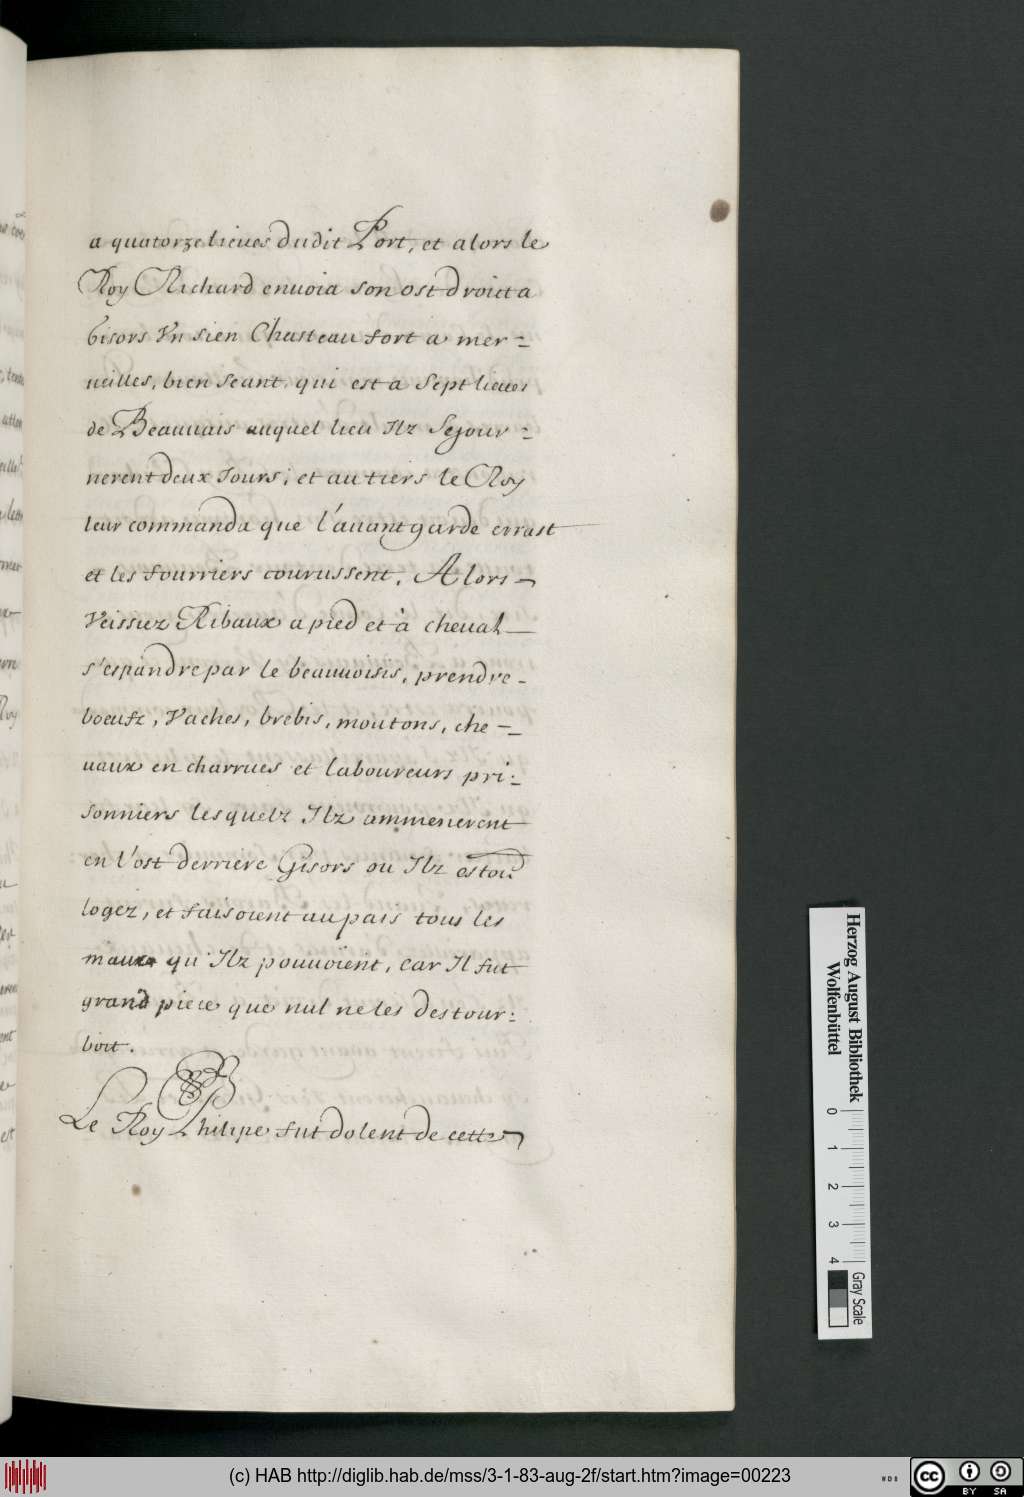 a quatorze lieues dudit Port, et alors le
Roy Richard enuoia son ost droict a
Gisors Vn sien Chasteau fort a mer-
ueilles, bien seant, qui est a Sept lieues
de Beauuais auquel lieu Ilz Sejour-
nerent deux Jours; et au tiers le Roy
leur commanda que l'auantgarde errast
et les fourriers courussent. Alors
Veissiez Ribaux a pied et à cheual
s'espandre par le beauuoisis, prendre
boeufz, Vaches, brebis, moutons, che-
uaux en charrues et laboureurs pri-
sonniers lesquelz Ilz ammenerent
en l'ost derriere Gisors ou Ilz estoiẽt
logez, et faisoient au païs tous les
maux qu'Ilz pouuoient, car Il fut
grand piece que nul ne les destour-
boit.
Le Roy Philipe fut dolent de cette
Herzog August Bibliothek
Wolfenbüttel
0 1 2 3 4
Gray Scale
(c) HAB http://diglib.hab.de/mss/3-1-83-aug-2f/start.htm?image=00223
WDB
cc BY SA